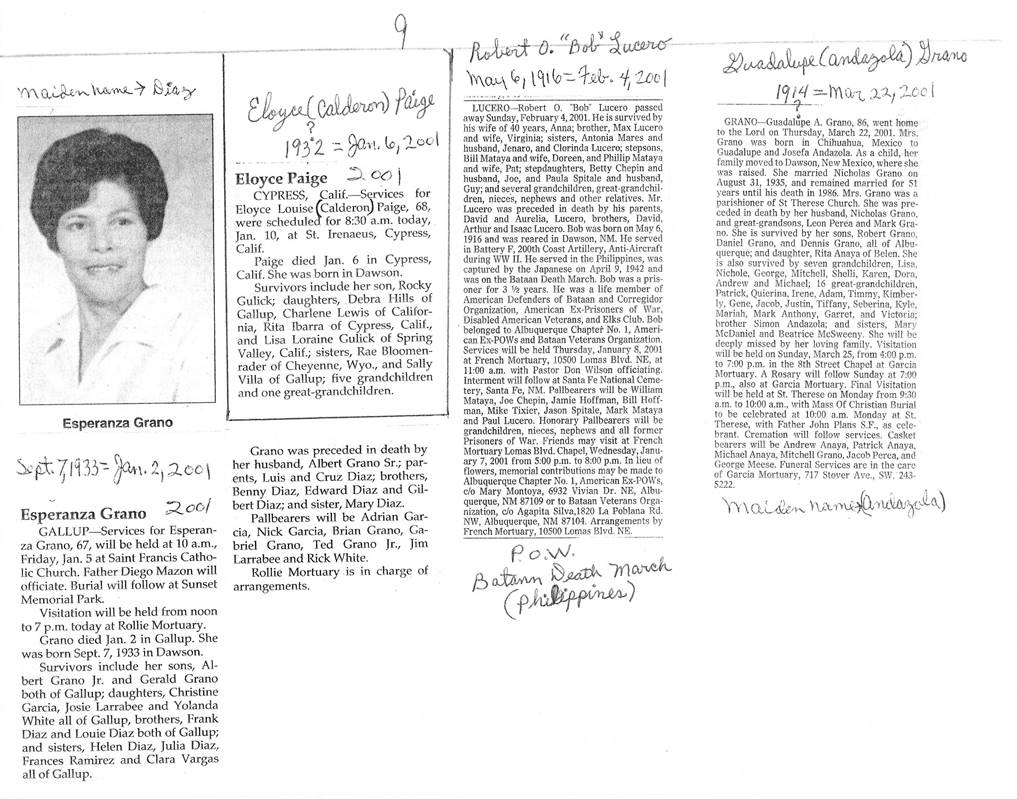 9
Maiden Name → Diaz
Esperanza Grano
Sept. 7, 1933 = Jan. 2, 2001
Esperanza Grano 2001
GALLUP—Services for Esperan-
za Grano, 67, will be held at 10 a.m.,
Friday, Jan. 5 at Saint Francis Catho-
lic Church. Father Diego Mazon will
officiate. Burial will follow at Sunset
Memorial Park.
Visitation will be held from noon
to 7 p.m. today at Rollie Mortuary.
Grano died Jan. 2 in Gallup. She
was born Sept. 7, 1933 in Dawson.
Survivors include her sons, Al-
bert Grano Jr. and Gerald Grano
both of Gallup; daughters, Christine
Garcia, Josie Larrabee and Yolanda
White all of Gallup, brothers, Frank
Diaz and Louie Diaz both of Gallup;
and sisters, Helen Diaz, Julia Diaz,
Frances Ramirez and Clara Vargas
all of Gallup.
Grano was preceded in death by
her husband, Albert Grano Sr.; par-
ents, Luis and Cruz Diaz; brothers,
Benny Diaz, Edward Diaz and Gil-
bert Diaz; and sister, Mary Diaz.
Pallbearers will be Adrian Gar-
cia, Nick Garcia, Brian Grano, Ga-
briel Grano, Ted Grano Jr., Jim
Larrabee and Rick White.
Rollie Mortuary is in charge of
arrangements.
Eloyce (Calderon) Paige
?
1932 = Jan. 6, 2001
Eloyce Paige 2001
CYPRESS, Calif.—Services for
Eloyce Louise (Calderon) Paige, 68,
were scheduled for 8:30 a.m. today,
Jan. 10, at St. Irenaeus, Cypress,
Calif.
Paige died Jan. 6 in Cypress,
Calif. She was born in Dawson.
Survivors include her son, Rocky
Gulick; daughters, Debra Hills of
Gallup, Charlene Lewis of Califor-
nia, Rita Ibarra of Cypress, Calif.,
and Lisa Loraine Gulick of Spring
Valley, Calif.; sisters, Rae Bloomen-
rader of Cheyenne, Wyo., and Sally
Villa of Gallup; five grandchildren
and one great-grandchildren.
Robert O. "Bob" Lucero
May 6, 1916 = Feb. 4, 2001
LUCERO—Robert O. "Bob" Lucero passed
away Sunday, February 4, 2001. He is survived by
his wife of 40 years, Anna; brother, Max Lucero
and wife, Virginia; sisters, Antonia Mares and
husband, Jenaro, and Clorinda Lucero; stepsons,
Bill Mataya and wife, Doreen, and Phillip Mataya
and wife, Pat; stepdaughters, Betty Chepin and
husband, Joe, and Paula Spitale and husband,
Guy; and several grandchildren, great-grandchil-
dren, nieces, nephews and other relatives. Mr.
Lucero was preceded in death by his parents,
David and Aurelia, Lucero, brothers, David,
Arthur and Isaac Lucero. Bob was born on May 6,
1916 and was reared in Dawson, NM. He served
in Battery F, 200th Coast Artillery, Anti-Aircraft
during WW II. He served in the Philippines, was
captured by the Japanese on April 9, 1942 and
was on the Bataan Death March. Bob was a pris-
oner for 3 ½ years. He was a life member of
American Defenders of Bataan and Corregidor
Organization, American Ex-Prisoners of War,
Disabled American Veterans, and Elks Club. Bob
belonged to Albuquerque Chapter No. 1, Ameri-
can Ex-POWs and Bataan Veterans Organization.
Services will be held Thursday, January 8, 2001
at French Mortuary, 10500 Lomas Blvd. NE, at
11:00 am. with Pastor Don Wilson officiating.
Interment will follow at Santa Fe National Ceme-
tery, Santa Fe, NM. Pallbearers will be William
Mataya, Joe Chepin, Jamie Hoffman, Bill Hoff-
man, Mike Tixier, Jason Spitale, Mark Mataya
and Paul Lucero. Honorary Pallbearers will be
grandchildren, nieces, nephews and all former
Prisoners of War. Friends may visit at French
Mortuary Lomas Blvd. Chapel, Wednesday, Janu-
ary 7, 2001 from 5:00 p.m. to 8:00 p.m. In lieu of
flowers, memorial contributions may be made to
Albuquerque Chapter No. 1, American Ex-POWs,
c/o Mary Montoya, 6932 Vivian Dr. NE, Albu-
querque, NM 87109 or to Bataan Veterans Orga-
nization, c/o Agapita Silva,1820 La Poblana Rd.
NW, Albuquerque, NM 87104. Arrangements by
French Mortuary, 10500 Lomas Blvd. NE.
P.O.W.
Batann Death March
(Philippines)
Guadalupe (Andazola) Grano
1914 = Mar 22, 2001
?
GRANO—Guadalupe A. Grano, 86, went home
to the Lord on Thursday, March 22, 2001. Mrs.
Grano was born in Chihuahua, Mexico to
Guadalupe and Josefa Andazola. As a child, her
family moved to Dawson, New Mexico, where she
was raised. She married Nicholas Grano on
August 31, 1935, and remained married for 51
years until his death in 1986. Mrs. Grano was a
parishioner of St Therese Church. She was pre-
ceded in death by her husband, Nicholas Grano,
and great-grandsons, Leon Perea and Mark Gra-
no. She is survived by her sons, Robert Grano,
Daniel Grano, and Dennis Grano, all of Albu-
querque; and daughter, Rita Anaya of Belen. She
is also survived by seven grandchildren, Lisa,
Nichole, George, Mitchell, Shelli, Karen, Dora,
Andrew and Michael; 16 great-grandchildren,
Patrick, Quierina, Irene, Adam, Timmy, Kimber-
ly, Gene, Jacob, Justin, Tiffany, Seberina, Kyle,
Mariah, Mark Anthony, Garret, and Victoria;
brother Simon Andazola; and sisters, Mary
McDaniel and Beatrice McSweeny. She will be
deeply missed by her loving family. Visitation
will be held on Sunday, March 25, from 4:00 p.m.
to 7:00 p.m. in the 8th Street Chapel at Garcia
Mortuary. A Rosary will follow Sunday at 7:00
p.m., also at Garcia Mortuary. Final Visitation
will be held at St. Therese on Monday from 9:30
a.m. to 10:00 a.m., with Mass Of Christian Burial
to be celebrated at 10:00 a.m. Monday at St.
Therese, with Father John Plans S.F., as cele-
brant. Cremation will follow services. Casket
bearers will be Andrew Anaya, Patrick Anaya,
Michael Anaya, Mitchell Grano, Jacob Perea, and
George Meese. Funeral Services are in the care
of Garcia Mortuary, 717 Stover Ave., SW. 243-
5222.
Maiden Name → (Andazola)